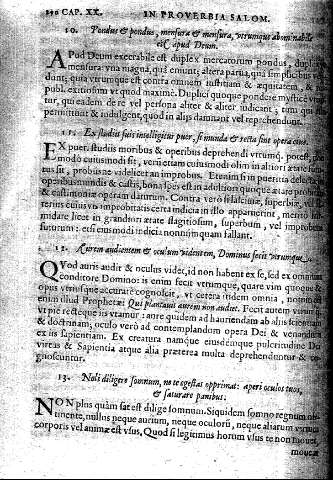 CAP. XX. IN PROVERBIA SALOM.
10. Pondus & pondus, mensura & mensura, utrumque abominabile
est apud Deum.
APud Deum execrabile est duplex mercatorum pondus, duplex
mensura: una magna, quâ emunt; altera parua, quâ simplicibus
dunt; quia utrumque est contra omnem iustitiam & æquitatem, &
publ. exitiosum ut quod maximè. Duplici quoque pondere mysticè
tur, qui eadem de re vel persona aliter & aliter iudicant; tum qui
permittunt & indulgent, quod in aliis damnant vel reprehendunt.
11. Ex studiis suis intelligitur puer, si munda & recta sint opera eius.
EX pueri studiis moribus & operibus deprehendi utrumq. potest,
modò cuiusmodi sit, verùm etiam cuiusmodi olim in altiori ætate
rus sit, probusne videlicet an improbus. Etenim si in pueritia
opibus mundis & castis, bona spes est in adultiori quoque ætate
& castimoniæ operam daturum. Contrà verò si lasciuiæ, superbiæ,
terius cuiusvis improbitatis certa indicia in illo apparuerint, meritò
midare licet in grandiori ætate flagitiosum, superbum, vel improbum
futurum: etsi eiusmodi indicia nonnunquam fallant.
12. Aurem audientem & oculum videntem, Dominus fecit utrumque.
QVod auris audit & oculus videt, id non habent ex se, sed ex omnium
conditore Domino: is enim fecit utrumque, quare vim quoque &
opus utriusque actutè cognoscit, ut cetera idem omnia,
enim illud Prophetæ: Qui plantauit aurem non audiet. Fecit autem
ut piè rectéque iis utamur: aure quidem ad hauriendam ab aliis
& doctrinam; oculo verò ad contemplandum opera Dei & venandam
ex iis sapientiam. Ex creatura namque eiusdémque pulcritudine
virtus & Sapientia atque alia præterea multa deprehenduntur &
gnoscuntur.
13. Noli diligere somnum, ne te egestas opprimat: aperi oculos tuos,
& saturare panibus.
NON plus quàm sat est dilige somnum. Siquidem somno regnum
tinente, nullus pecus aurium, neque oculorû, neque aliarum
corporis vel animæ est vsus, Quod si legitimus horum vsus te non mouet,
mouea